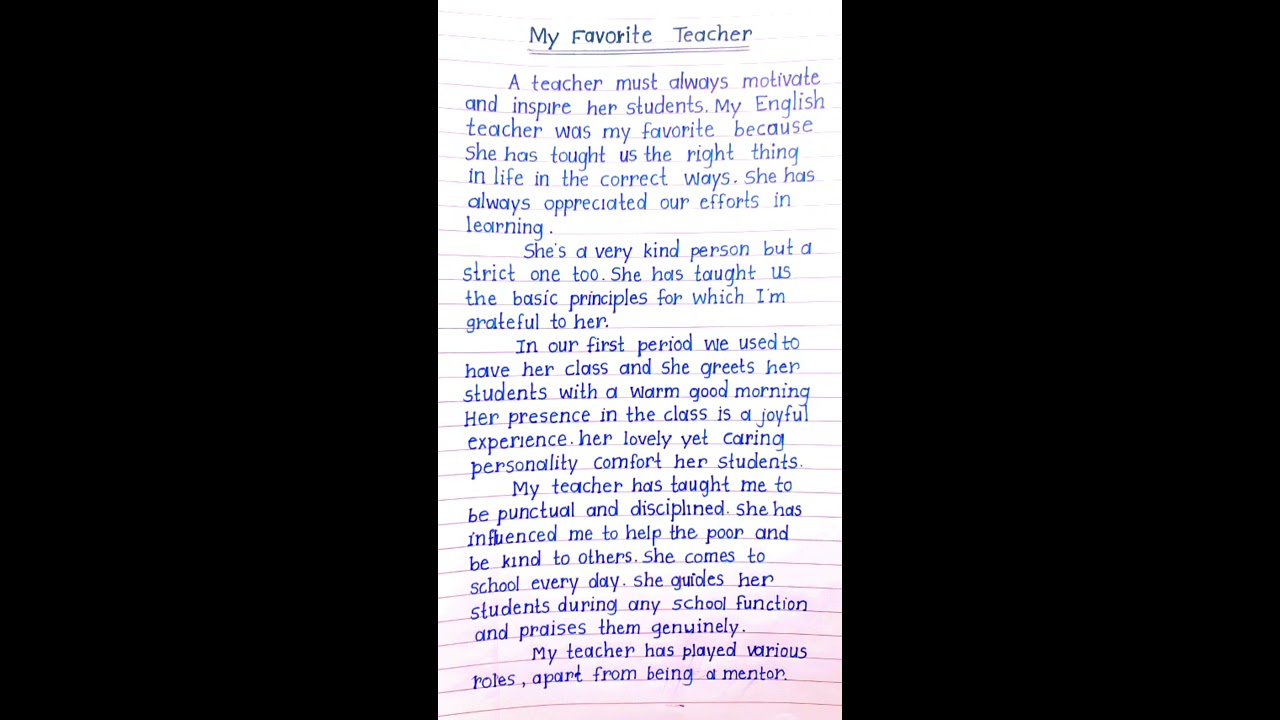 My Favorite Teacher
A teacher must always motivate
and inspire her students. My English
teacher was my favorite because
She has tought us the right thing
in life in the correct ways. She has
always oppreciated our efforts in
learning.
She's a very kind person but a
strict one too. She has taught us
the basic principles for which I'm
grateful to her.
In our first period we used to
have her class and she greets her
students with a warm good morning
Her presence in the class is a joyful
experience. her lovely yet caring
personality comfort her students.
My teacher has taught me to
be punctual and disciplined. She has
influenced me to help the poor and
be kind to others. She comes to
school every day. She guides her
students during any school function
and praises them genuinely.
My teacher has played various
roles, apart from being a mentor.